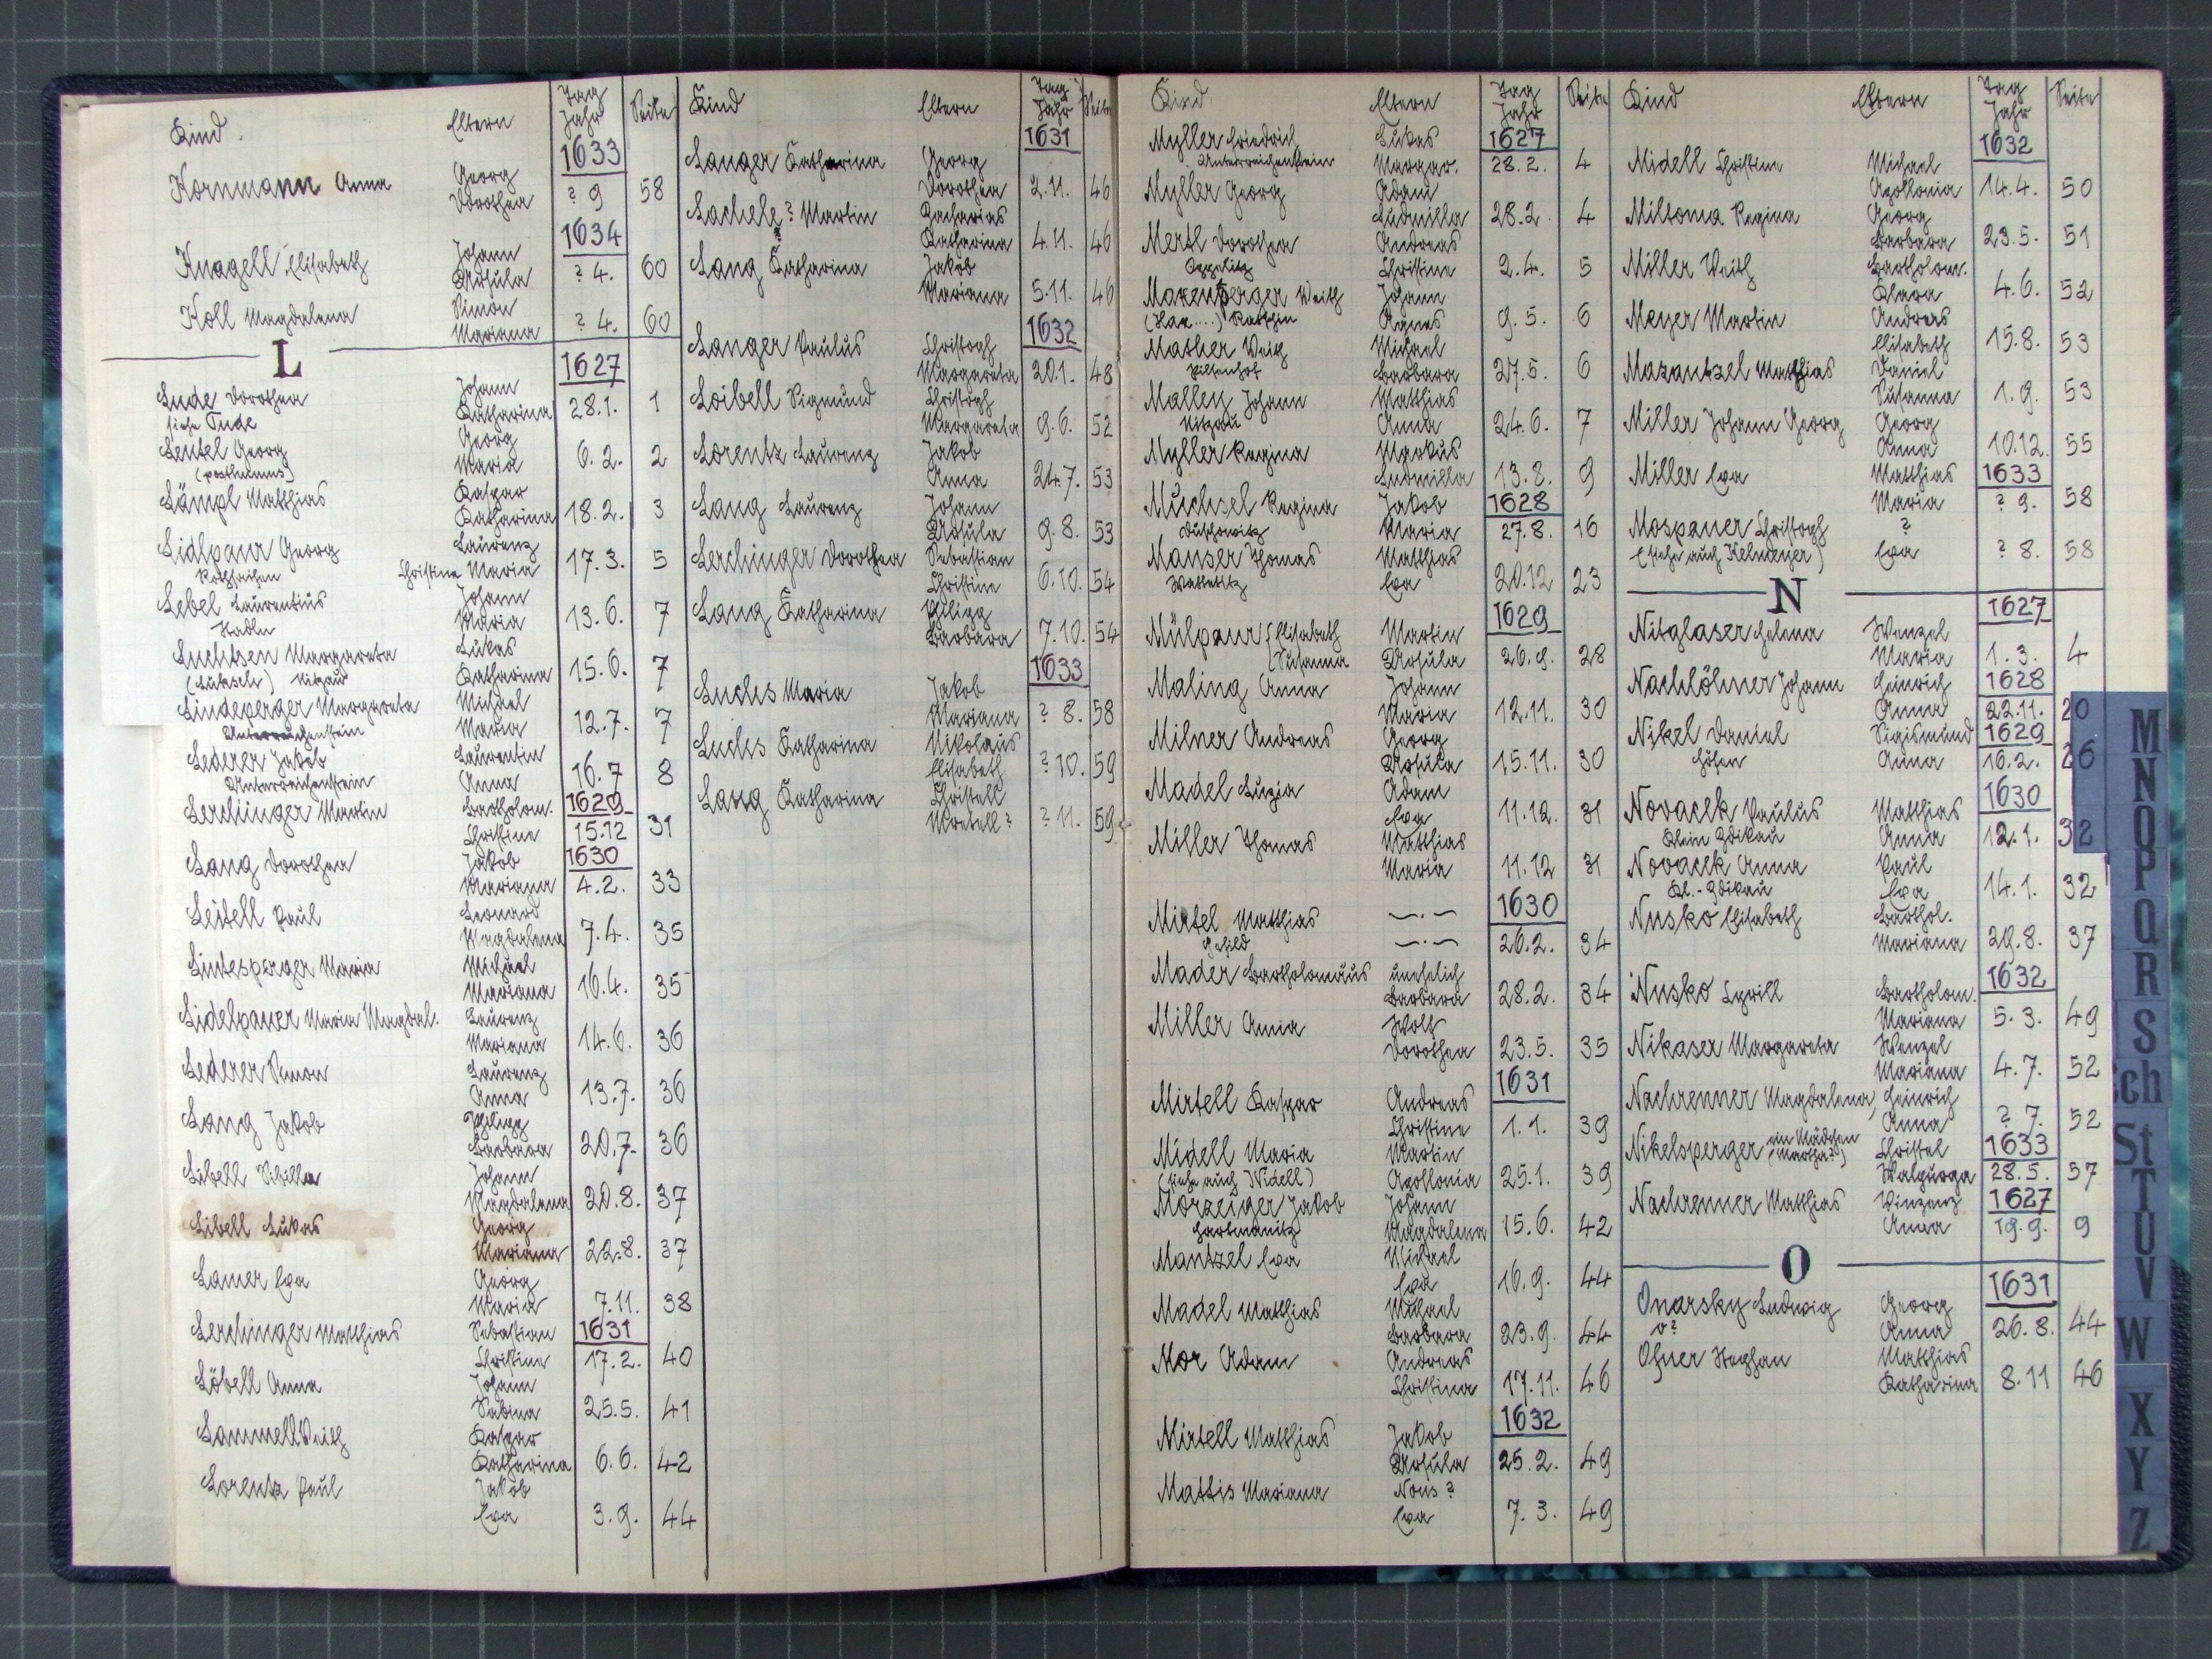 Kind. Eltern Tag Jahr Seite
1633
Kornmann Anna Georg
Dorothea ? 9 58
1634
Knagell Elisabeth Johann
Ursula ? 4. 60
Koll Magdalena Simon
Mariana ? 4. 60
L
1627
Lude Dorothea Johann
siehe Tude Katharina 28.1. 1
Leutel Georg Georg
(posthumus) Maria 6.2. 2
Lämpl Matthias Kaspar
Katharina 18.2. 3
Lidlpaur Georg Laurenz
Rothseihen Christine Maria 17.3. 5
Lebel Laurentius Johann
Stadln Maria 13.6. 7
Luchtsen Margareta Lukas
(Luksch) Nitzau Katharina 15.6. 7
Lindeperger Margareta Michael
Unterreichenstein Maria 12.7. 7
Lederer Jakob Laurentin
Unterreichenstein Anna 16.7 8
Lerchinger Martin Bartholom. 1629
Christine 15.12 31
Lang Dorothea Jakob 1630
Mariana 4.2. 33
Leitell Paul Leonard
Magdalena 7.4. 35
Lintesperger Maria Michael
Mariana 16.4. 35
Lidelpauer Maria Magdal. Laurenz
Mariana 14.6. 36
Lederer Simon Laurenz
Anna 13.7. 36
Lang Jakob Philipp
Barbara 20.7. 36
Libell Sibilla Johann
Magdalena 20.8. 37
Libell Lukas Georg
Mariana 22.8. 37
Lamer Eva Georg
Maria 7.11. 38
Lerchinger Matthias Sebastian 1631
Christine 17.2. 40
Löbell Anna Johann
Sabina 25.5. 41
Lammell Veith Kaspar
Katharina 6.6. 42
Lorentz Paul Jakob
Eva 3.9. 44
Kind Eltern Tag Jahr Seite
1631
Langer Katharina Georg
Dorothea 2.11. 46
Lachele? Martin Zacharias
Katharina 4.11. 46
Lang Katharina Jakob
Mariana 5.11. 46
1632
Langer Paulus Christoph
Margareta 20.1. 48
Loibell Sigmund Christoph
Margareta 9.6. 52
Lorentz Laurenz Jakob
Anna 24.7. 53
Lang Laurenz Johann
Ursula 9.8. 53
Lerchinger Dorothea Sebastian
Christine 6.10. 54
Lang Katharina Philipp
Barbara 7.10. 54
1633
Luchs Maria Jakob
Mariana ? 8. 58
Luchs Katharina Nikolaus
Elisabeth ? 10. 59
Lang Katharina Christell
? 11. 59
Kind. Eltern Tag Jahr Seite
Myller Friedrich Lukas 1627
Unterreichenstein Margar. 28.2. 4
Myller Georg Adam
Ludmilla 28.2. 4
Mertl Dorothea Andreas
Christine 2.4. 5
Maxenperger Veith Johann
(Hax....) Agnes 9.5. 6
Mather Veith Michael
Barbara 27.5. 6
Malley Johann Matthias
Nitzau Anna 24.6. 7
Myller Regina Markus
Ludmilla 13.8. 9
Muchsel Regina Jakob 1628
Duschowitz Maria 27.8. 16
Manser Thomas Matthias
Watetitz Eva 20.12 23
1629
Mülpaur (Elisabeth Martin
(Susanna Ursula 26.9. 28
Maling Anna Johann
Maria 12.11. 30
Milner Andreas Georg
Ursula 15.11. 30
Madel Luzia Adam
Eva 11.12. 31
Miller Thomas Matthias
Maria 11.12 31
1630
Mirtel Matthias —.—
Gefild —.— 26.2. 34
Mader Bartholomäus unehelich
Barbara 28.2. 34
Miller Anna Wolf
Dorothea 23.5. 35
1631
Mirtell Kaspar Andreas
Christine 1.1. 39
Midell Maria Martin
(siehe auch Widell) Apollonia 25.1. 39
Morzeiger Jakob Johann
Hartmanitz Magdalena 15.6. 42
Mantzel Eva Michael
Eva 16.9. 44
Madel Matthias Michael
Barbara 23.9. 44
Mor Adam Andreas
Christina 17.11. 46
1632
Mirtell Matthias Jakob
Ursula 25.2. 49
Mattis Mariana Nous?
Eva 7.3. 49
Kind Eltern Tag Jahr Seite
1632
Midell Christine Michael
Apollonia 14.4. 50
Miltoma Regina Georg
Barbara 23.5. 51
Miller Veith Bartholom.
Klara 4.6. 52
Meyer Martin Andreas
Elisabeth 15.8. 53
Mazantzel Matthias Daniel
Susanna 1.9. 53
Miller Johann Georg Georg
Anna 10.12. 55
Miller Eva Matthias 1633
Maria ? 9. 58
Mospauer Christoph ?
(siehe auch Kelmeyer) Eva ? 8. 58
N
1627
Nitglaser Helena Wenzel
Maria 1.3. 4
Nachlöhner Johann Heinrich 1628
Anna 22.11. 20
Nikel Daniel Sigismund 1629
Höhen Anna 16.2. 26
1630
Novacek Paulus Matthias
Klein Zdikau Anna 12.1. 32
Novacek Anna Paul
Kl.-Zdikau Eva 14.1. 32
Nusko Elisabeth Barthol.
Mariana 29.8. 37
1632
Nusko Cyrill Bartholom.
Mariana 5.3. 49
Nikaser Margareta Wenzel
Mariana 4.7. 52
Nachrenner Magdalena Heinrich
Anna ? 7. 52
Nikelsperger ein Mädchen Christel 1633
(Martha?) Walpurga 28.5. 57
Nachrenner Matthias Vinzenz 1627
Anna 19.9. 9
O
1631
Onarsky Ludwig Georg
v? Anna 26.8. 44
Ofner Stephan Matthias
Katharina 8.11 46
M
N
O
P
Q
R
S
Sch
St
T
U
V
W
X
Y
Z